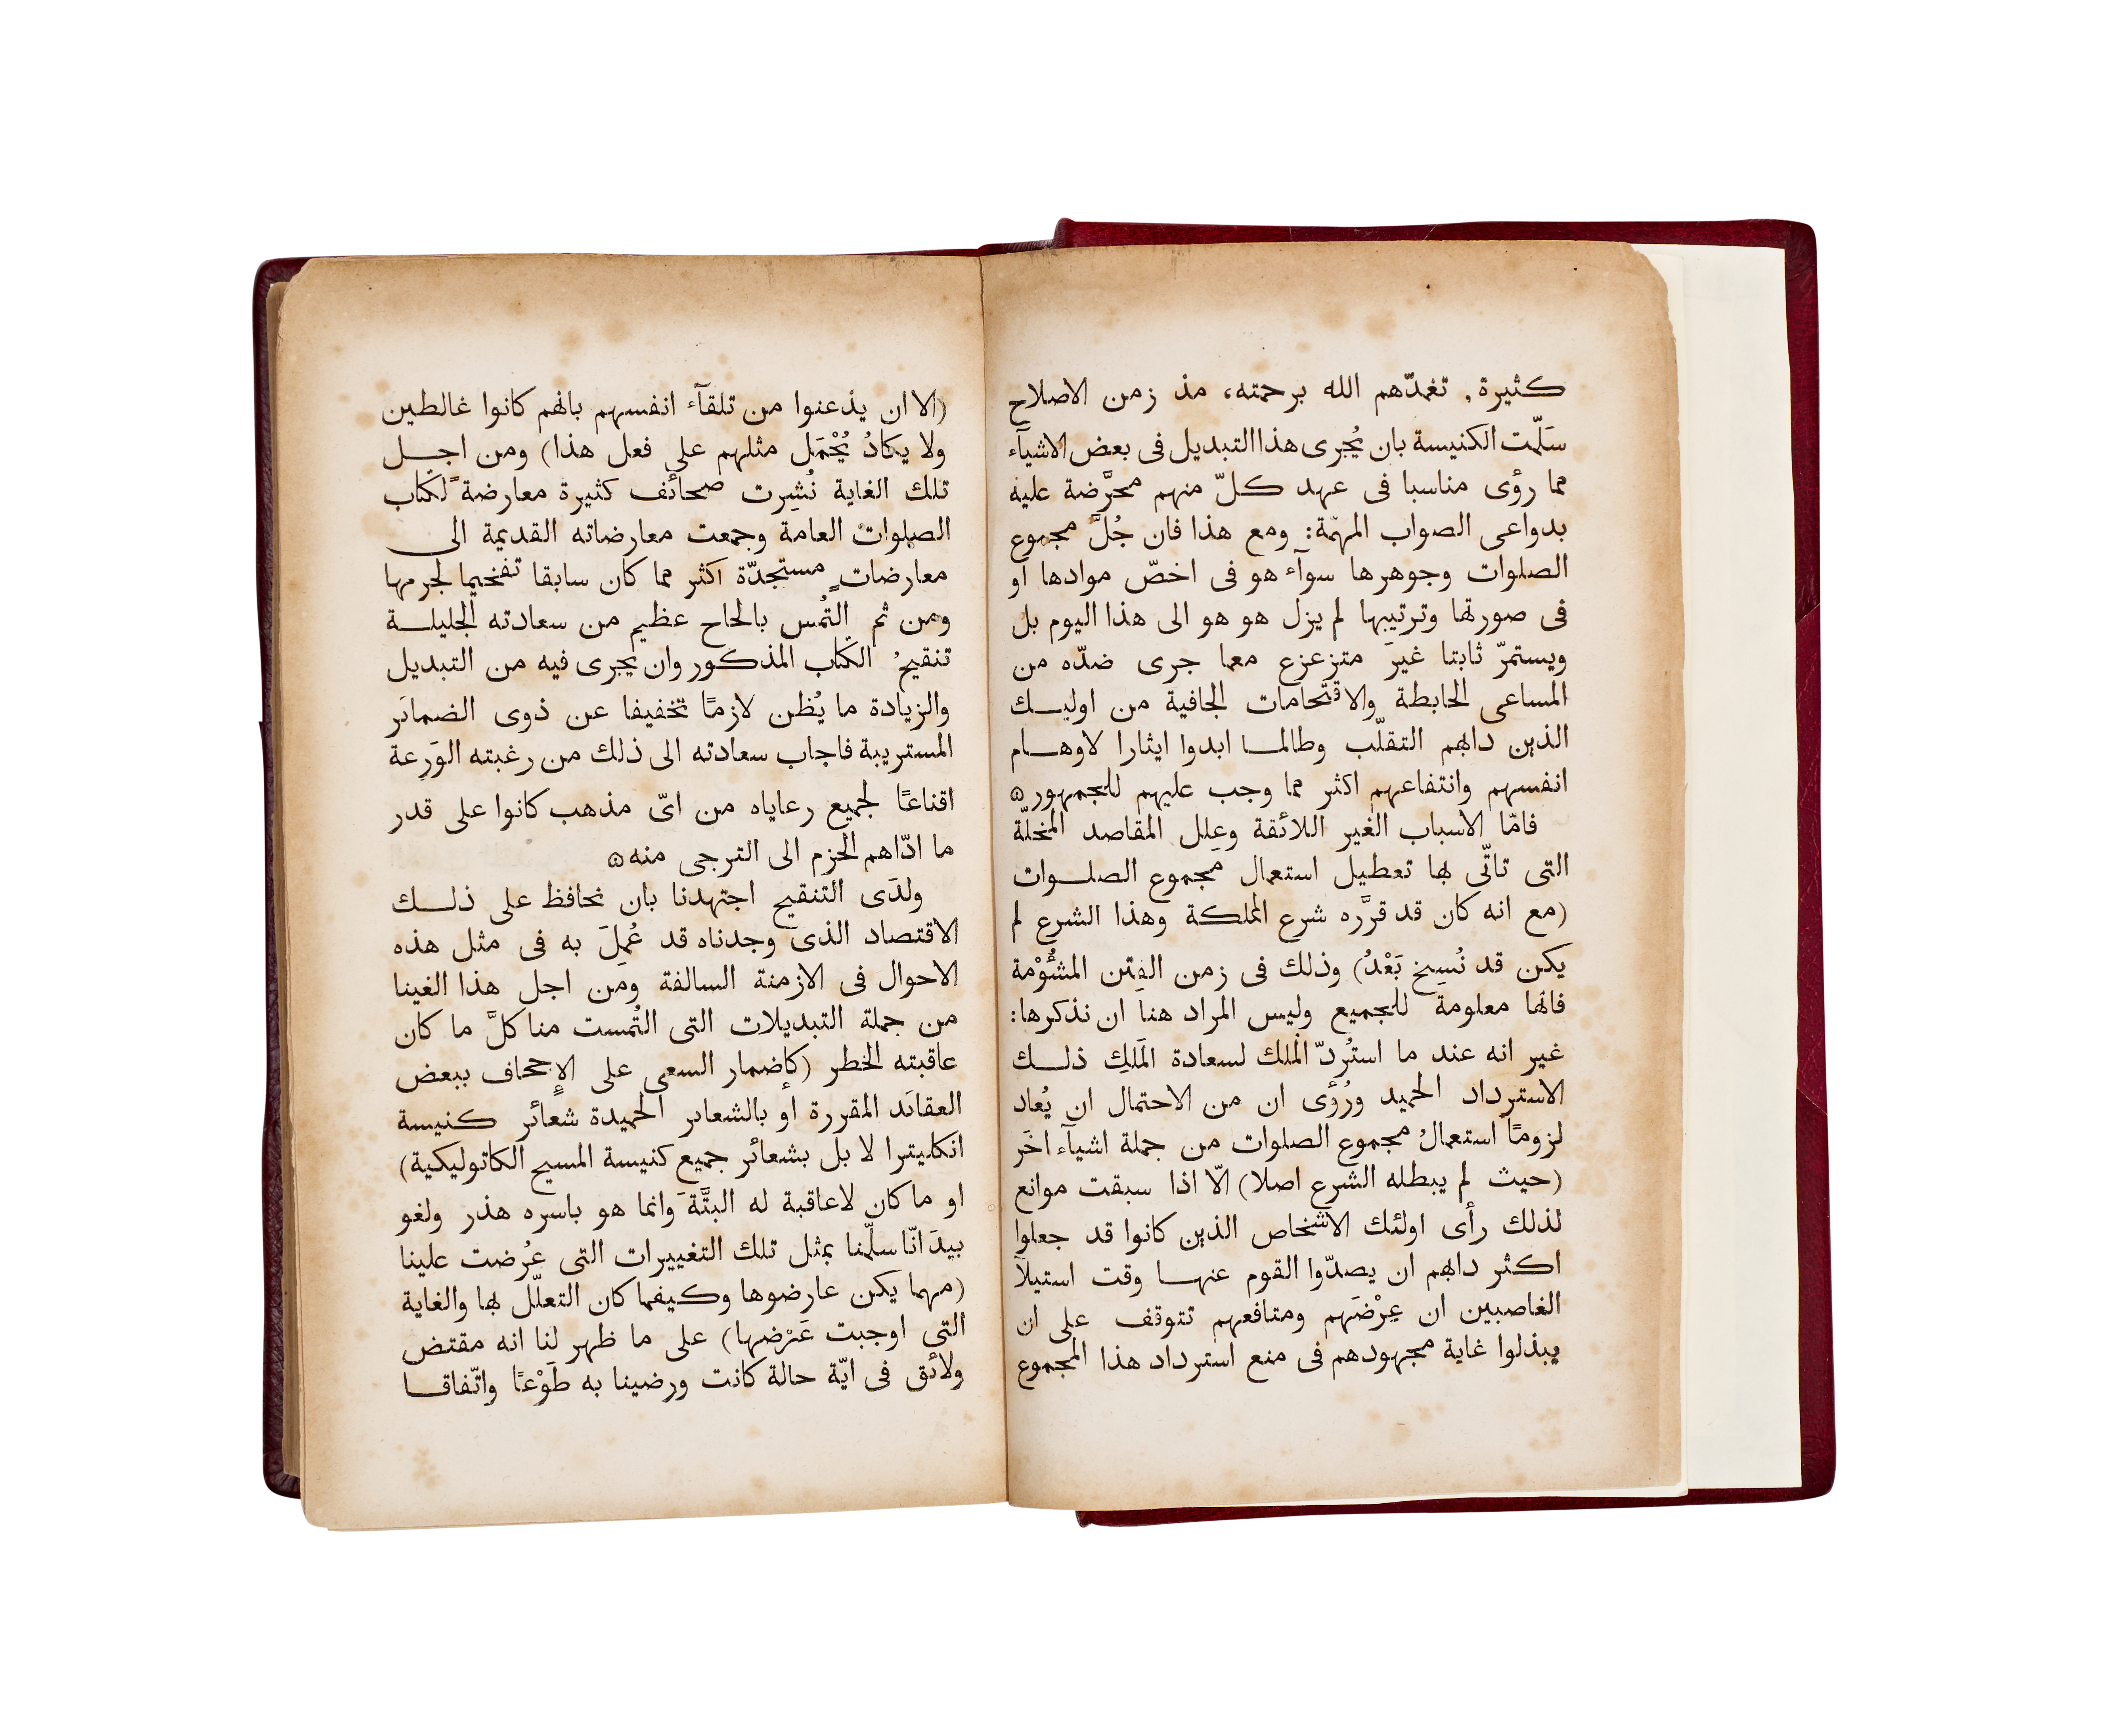 كثيرة, تغمدّهم الله برحمته، مذ زمن الاصلاح
سَلّمت الكنيسة بان يُجرى هذا التبديل فى بعض الاشيآء
مما رؤى مناسبا فى عهد كلّ منهم محرَّضة عليه
بدواعى الصواب المهمّة: ومع هذا فان جُلَّ مجموع
الصلوات وجوهرها سوآء هو فى اخصّ موادها او
فى صورتها وترتيبها لم يزل هو هو الى هذا اليوم بل
ويستمرّ ثابتا غيرَ متزعزع معما جرى ضدّه من
المساعى الحابطة والاقتحامات الجافية من اوليك
الذين دابهم التقلّب وطالما ابدوا ايثارا لاوهام
انفسهم وانتفاعهم اكثر مما وجب عليهم للجمهور ۞
فامّا الاسباب الغير اللائقة وعِلل المقاصد المخلّة
التى تاتّى بها تعطيل استعمال مجموع الصلوات
(مع انه كان قد قرَّره شرع المملكة وهذا الشرع لم
يكن قد نُسِخ بَعْدُ) وذلك فى زمن الفِتن المشُوْمة
فانها معلومة للجميع وليس المراد هنا ان نذكرها:
غير انه عند ما استُردّ المُلك لسعادة المَلِك ذلك
الاسترداد الحميد ورُؤى ان من الاحتمال ان يُعاد
لزومًا استعمالُ مجموع الصلوات من جملة اشيآء اخَر
(حيث لم يبطله الشرع اصلا) الّا اذا سبقت موانع
لذلك رأى اولئك الاشخاص الذين كانوا قد جعلوا
اكثر دابهم ان يصدّوا القوم عنها وقت استيلآ
الغاصبين ان عِرْضَهم ومنافعهم تتوقف على ان
يبذلوا غاية مجهودهم فى منع استرداد هذا المجموع
(الا ان يذعنوا من تلقآء انفسهم بانهم كانوا غالطين
ولا يكادُ يُحْمَل مثلهم على فعل هذا) ومن اجل
تلك الغاية نُشِرت صحائف كثيرة معارضةً لكتاب
الصلوات العامة وجمعت معارضاته القديمة الى
معارضاتٍ مستجدّة اكثر مما كان سابقا تفخيما لجرمها
ومن ثم التُمس بالحاح عظيم من سعادته الجليلة
تنقيحُ الكتاب المذكور وان يجرى فيه من التبديل
والزيادة ما يُظن لازمًا تخفيفا عن ذوى الضمائر
المستريبة فاجاب سعادته الى ذلك من رغبته الوَرعة
اقناعًا لجميع رعاياه من اىّ مذهب كانوا على قدر
ما ادّاهم الحزم الى الترجى منه ۞
ولدَى التنقيح اجتهدنا بان نحافظ على ذلك
الاقتصاد الذى وجدناه قد عُمِلَ به فى مثل هذه
الاحوال فى الازمنة السالفة ومن اجل هذا الغينا
من جملة التبديلات التى التُمست منا كلَّ ما كان
عاقبته الخطر (كإضمار السعى على الإجحاف ببعض
العقائد المقررة او بالشعائر الحميدة شعائر كنيسة
انكليترا لا بل بشعائر جميع كنيسة المسيح الكاتوليكية)
او ما كان لا عاقبة له البتَّةَ وانما هو باسره هذر ولغو
بيدَ انّا سلّمنا بمثل تلك التغييرات التى عُرضت علينا
(مهما يكن عارضوها وكيفما كان التعلّل بها والغاية
التى اوجبت عَرْضها) على ما ظهر لنا انه مقتض
ولائق فى ايّة حالة كانت ورضينا به طَوْعًا واتّفاقا